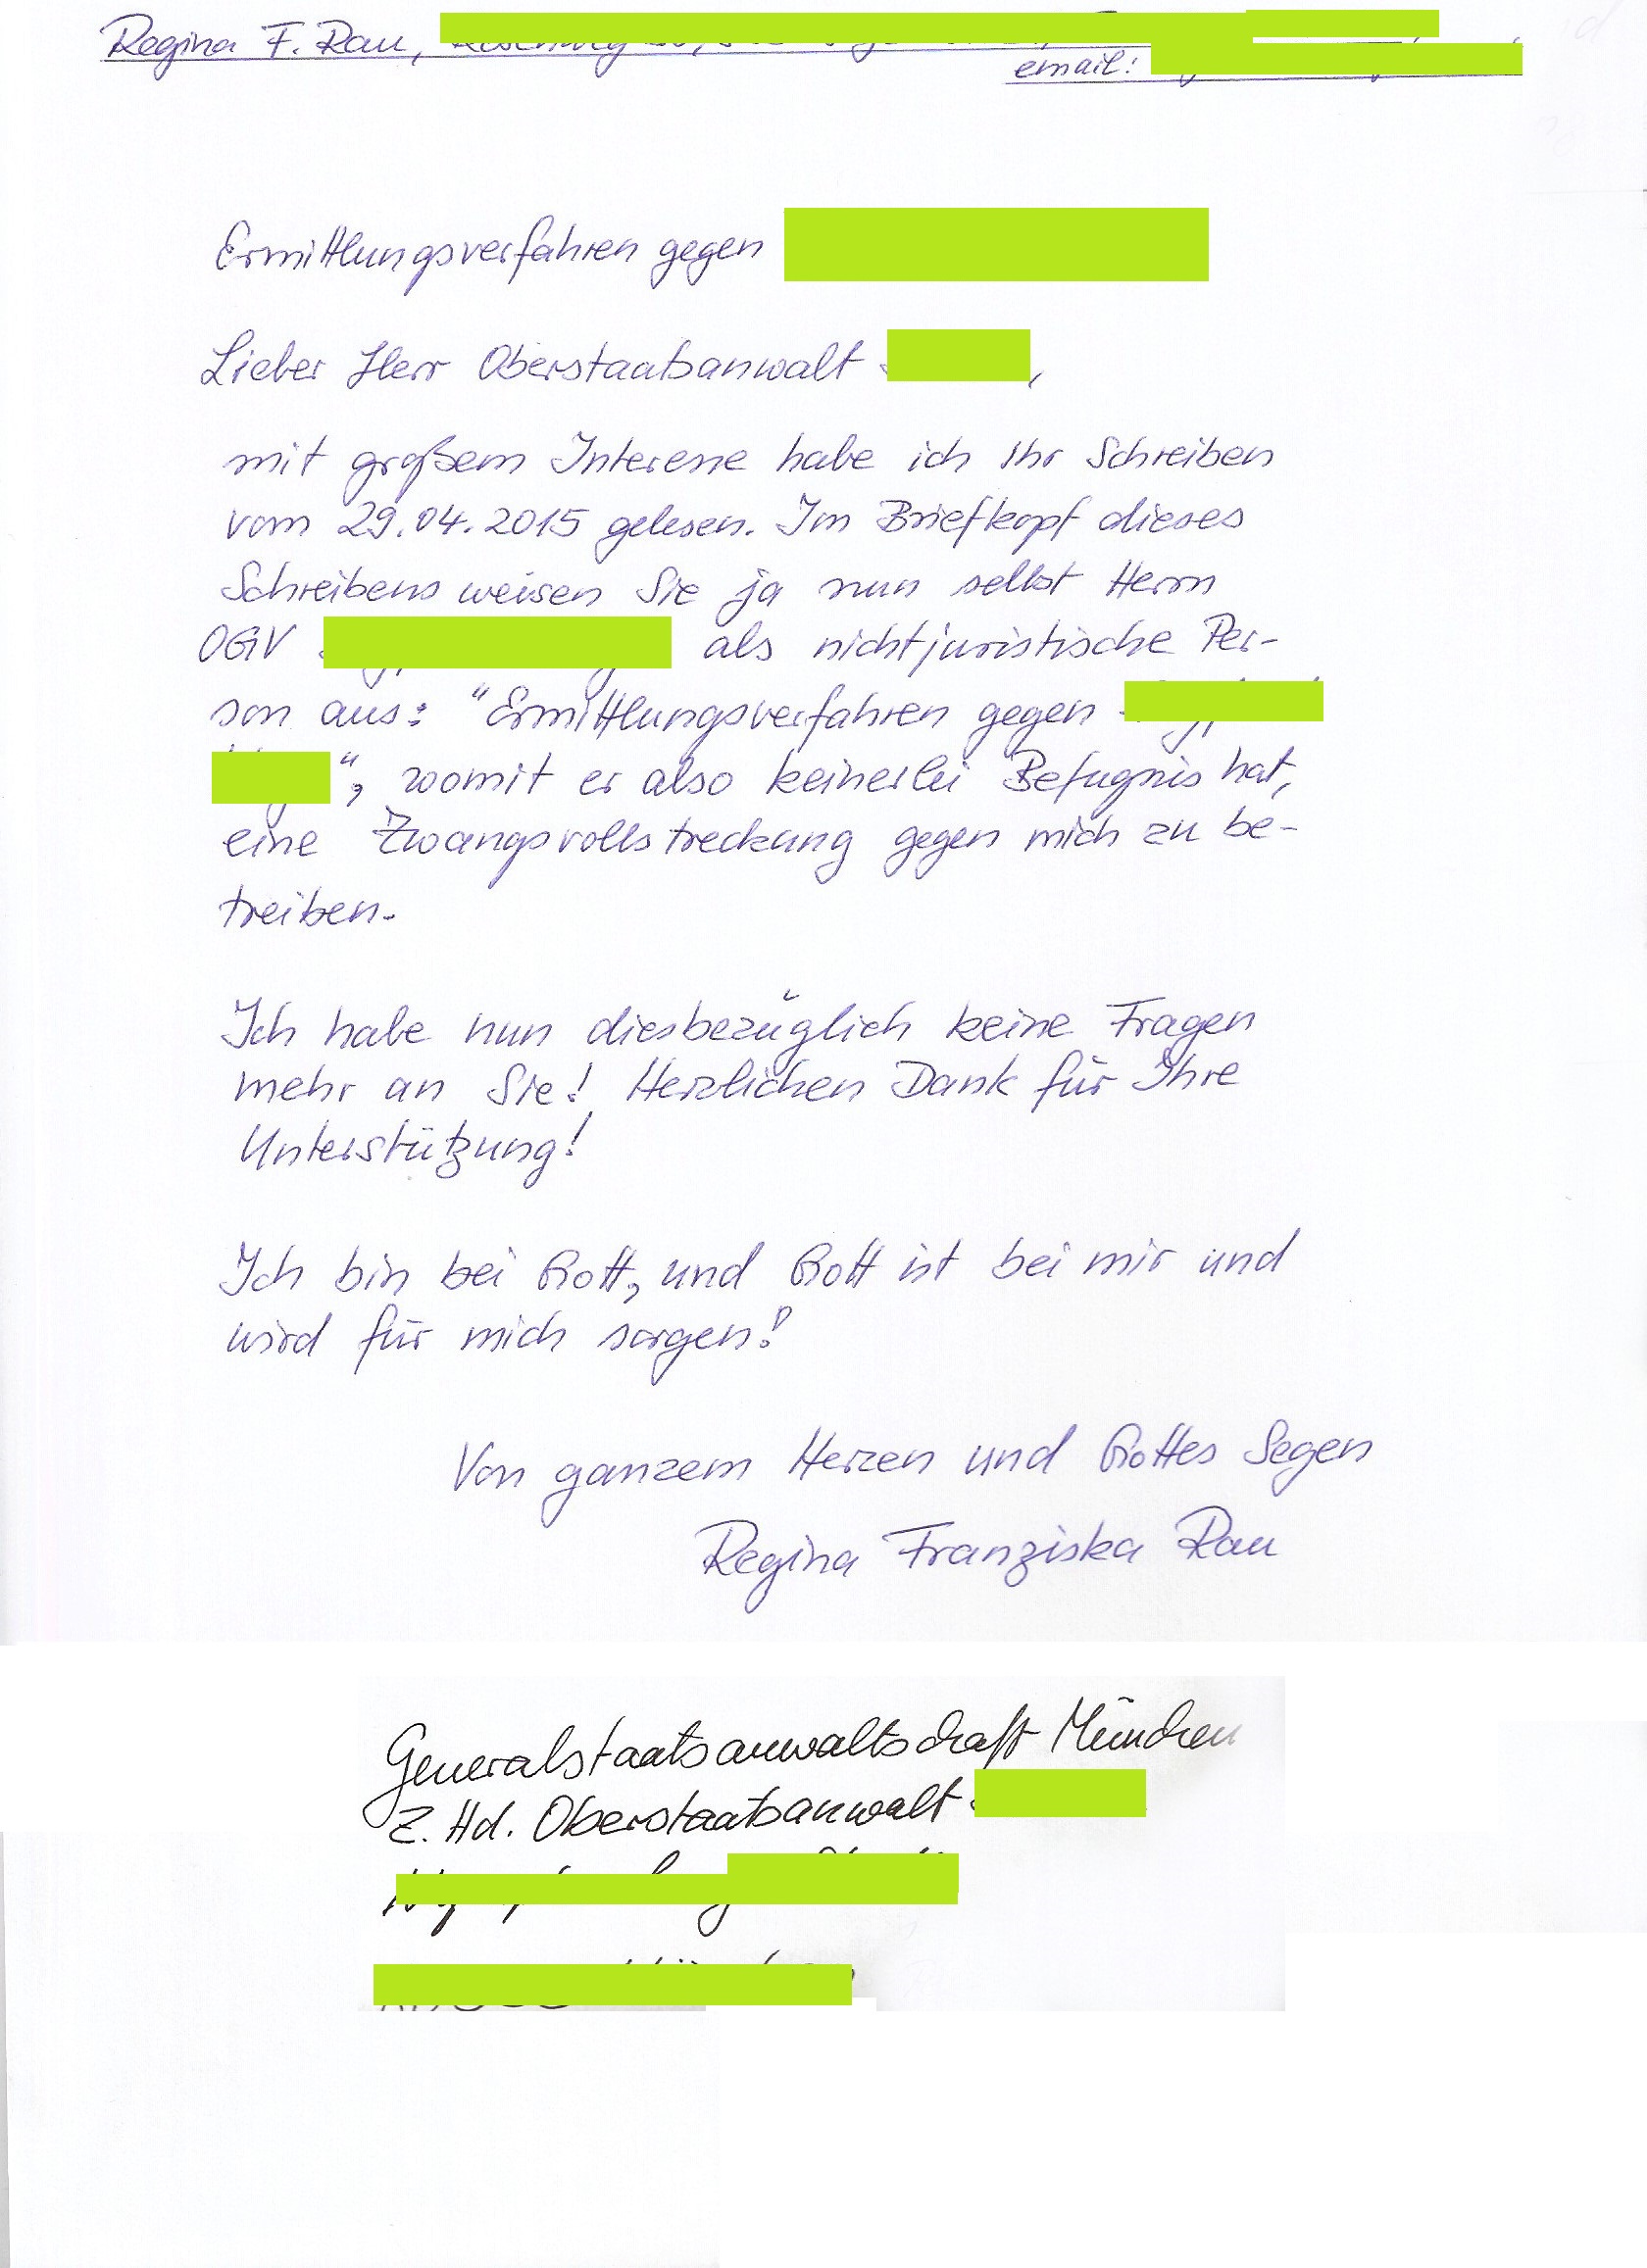 Regina F. Rau,
email:
Ermittlungsverfahren gegen
Lieber Herr Oberstaatsanwalt ,
mit großem Interesse habe ich Ihr Schreiben
vom 29.04.2015 gelesen. Im Briefkopf dieses
Schreibens weisen Sie ja nun selbst Herrn
OGV als nichtjuristische Per-
son aus: "Ermittlungsverfahren gegen
", womit er also keinerlei Befugnis hat,
eine Zwangsvollstreckung gegen mich zu be-
treiben.
Ich habe nun diesbezüglich keine Fragen
mehr an Sie! Herzlichen Dank für Ihre
Unterstützung!
Ich bin bei Gott, und Gott ist bei mir und
wird für mich sorgen!
Von ganzem Herzen und Gottes Segen
Regina Franziska Rau
Generalstaatsanwaltschaft München
z. Hd. Oberstaatsanwalt